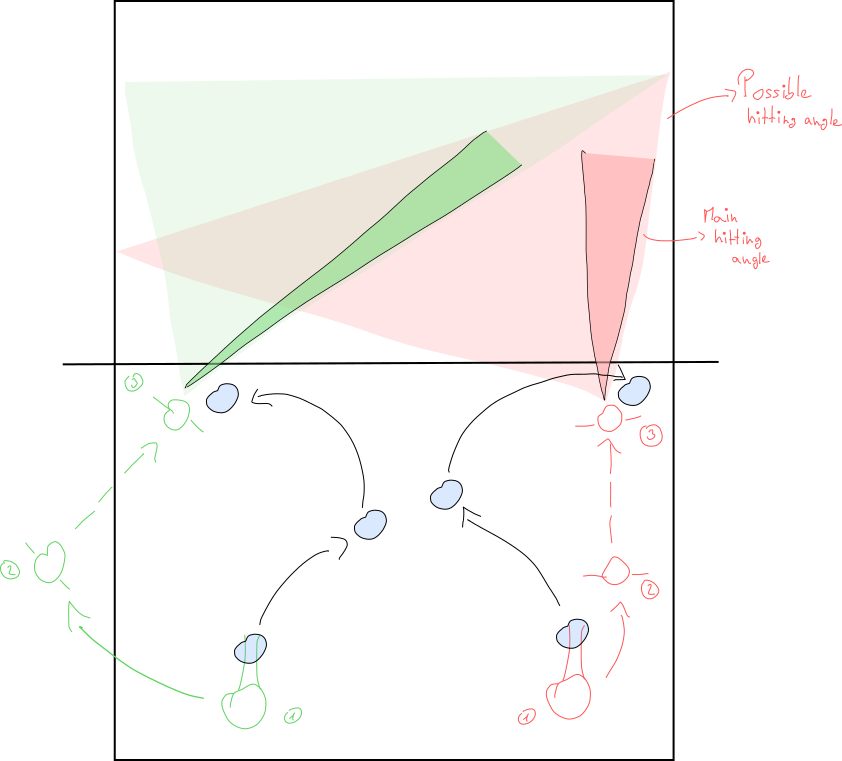 Possible
hitting angle
Main
hitting
angle
3
3
2
2
1
1